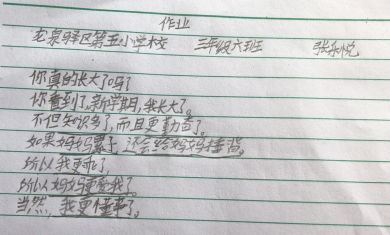 作业
龙泉驿区第五小学校 三年级六班 张乐悦
你真的长大了吗?
你看到了,新学期,我长大了。
不但知识多了,而且更勤奋了。
如果妈妈累了,还会给妈妈捶背。
所以我更忙了,
所以妈妈更爱我了。
当然,我更懂事了。